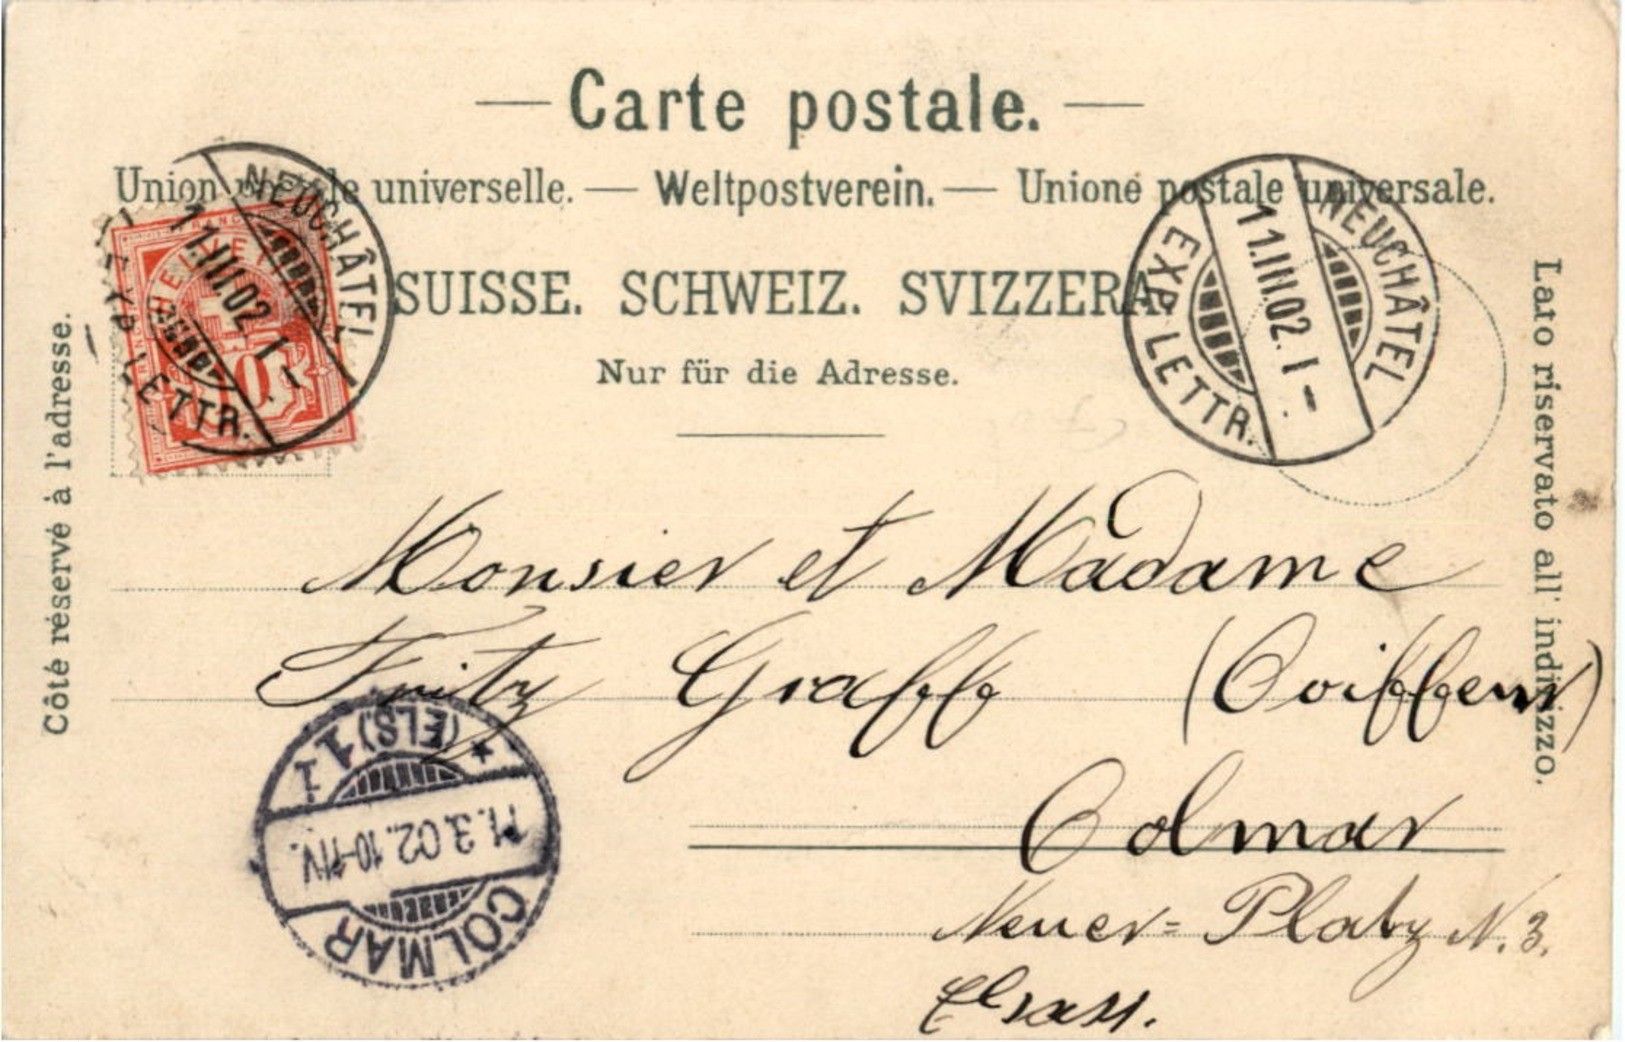 Carte postale.
Union postale universelle. — Weltpostverein. — Unione postale universale.
SUISSE. SCHWEIZ. SVIZZERA.
Nur für die Adresse.
Côté réservé à l'adresse.
Lato riservato all' indirizzo.
HELVETIA
FRANCO
10
NEUCHÂTEL
11.III.02.I–
EXP. LETTR.
NEUCHÂTEL
11.III.02.I–
EXP. LETTR.
Monsier et Madame
Fritz Graff (Coiffeur)
Colmar
Neuer=Platz N. 3.
Elsass.
COLMAR
11.3.02. 10-11V.
* (ELS) 1 1